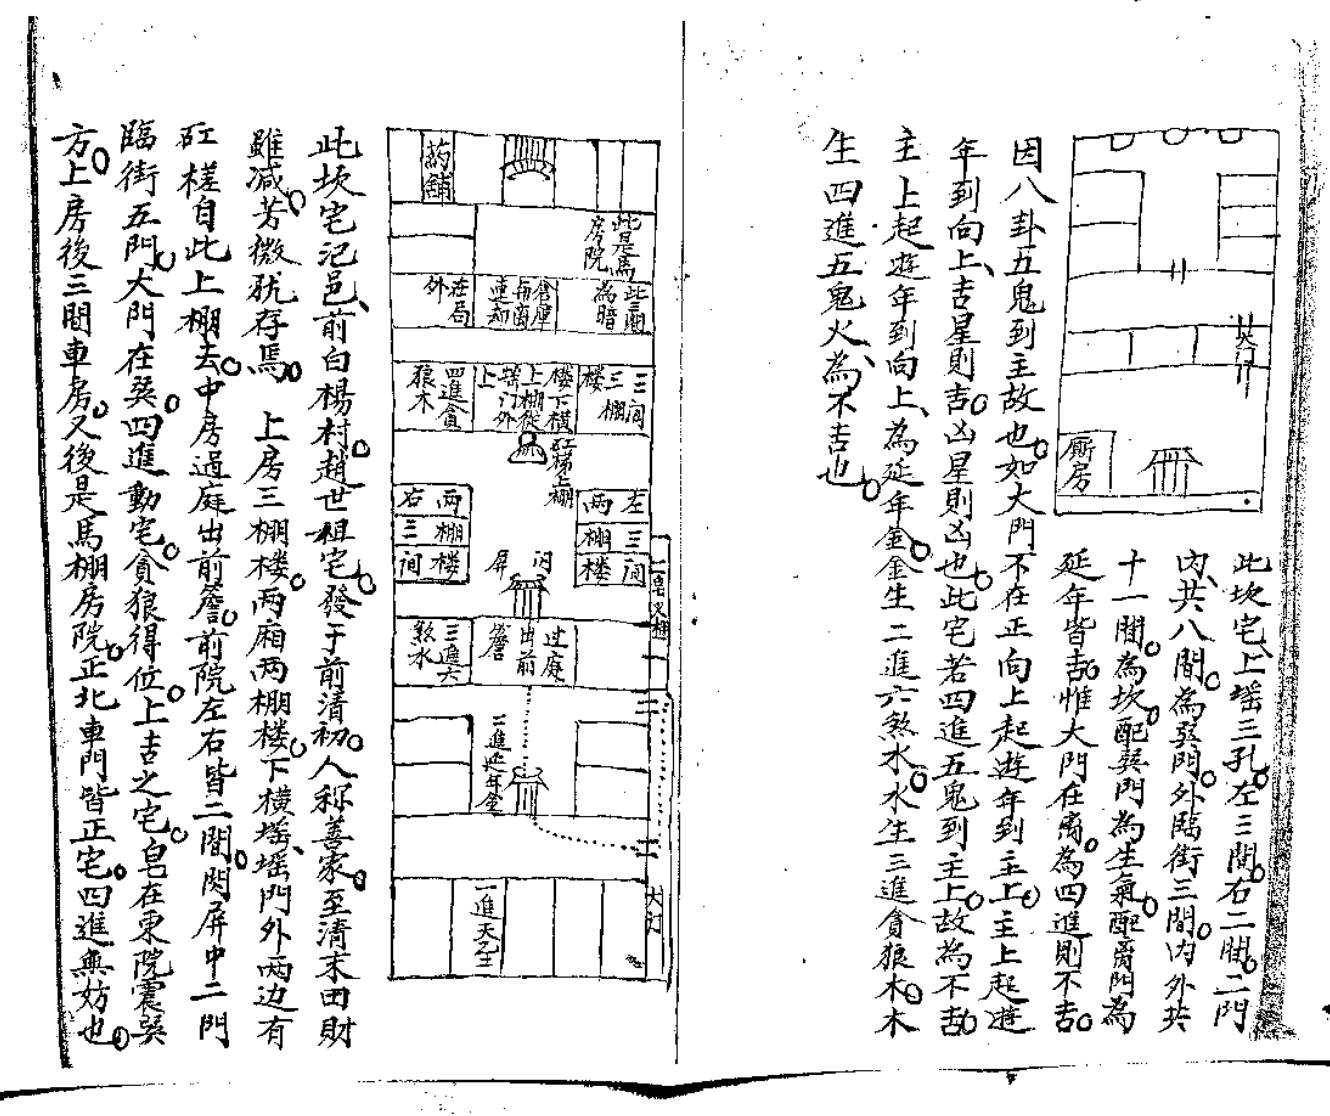 此坎宅上磘三孔左三間右二間二門
内共八間為巽門外臨街三間内外共
十一間為坎配巽門為生氣配离門為
延年皆吉惟大門在离為四進則不吉
因八卦五鬼到主故也如大門不在正向上起遊年到主上主上起遊
年到向上吉星則吉凶星則凶也此宅若四進五鬼到主上故為不吉
主上起遊年到向上為延年金金生二進六煞水水生三進貪狼木木
生四進五鬼火為不吉也
大门
厠房
葯舖
此是馬
房院
此三间
為暗
倉庫
在局
外
三间
三棚
楼
楼下横
上棚從
磘门外
上
四進貪
狼木
矼梯上棚
左三间
两棚楼
两棚楼
右三间
闪
屏
过庭
出前
簷
三進六
煞水
二進延年金
一進天乙土
大门
此坎宅氾邑前白楊村趙世祖宅發于前清初人称善家至清末田財
雖减芳微犹存焉 上房三棚楼两廂两棚楼下横磘磘門外两边有
矼槎自此上棚去中房过庭出前簷前院左右皆二間闪屏中二門
臨街五門大門在巽四進動宅貪狼得位上吉之宅皂在東院震巽
方上房後三間車房又後是馬棚房院正北車門皆正宅四進無妨也